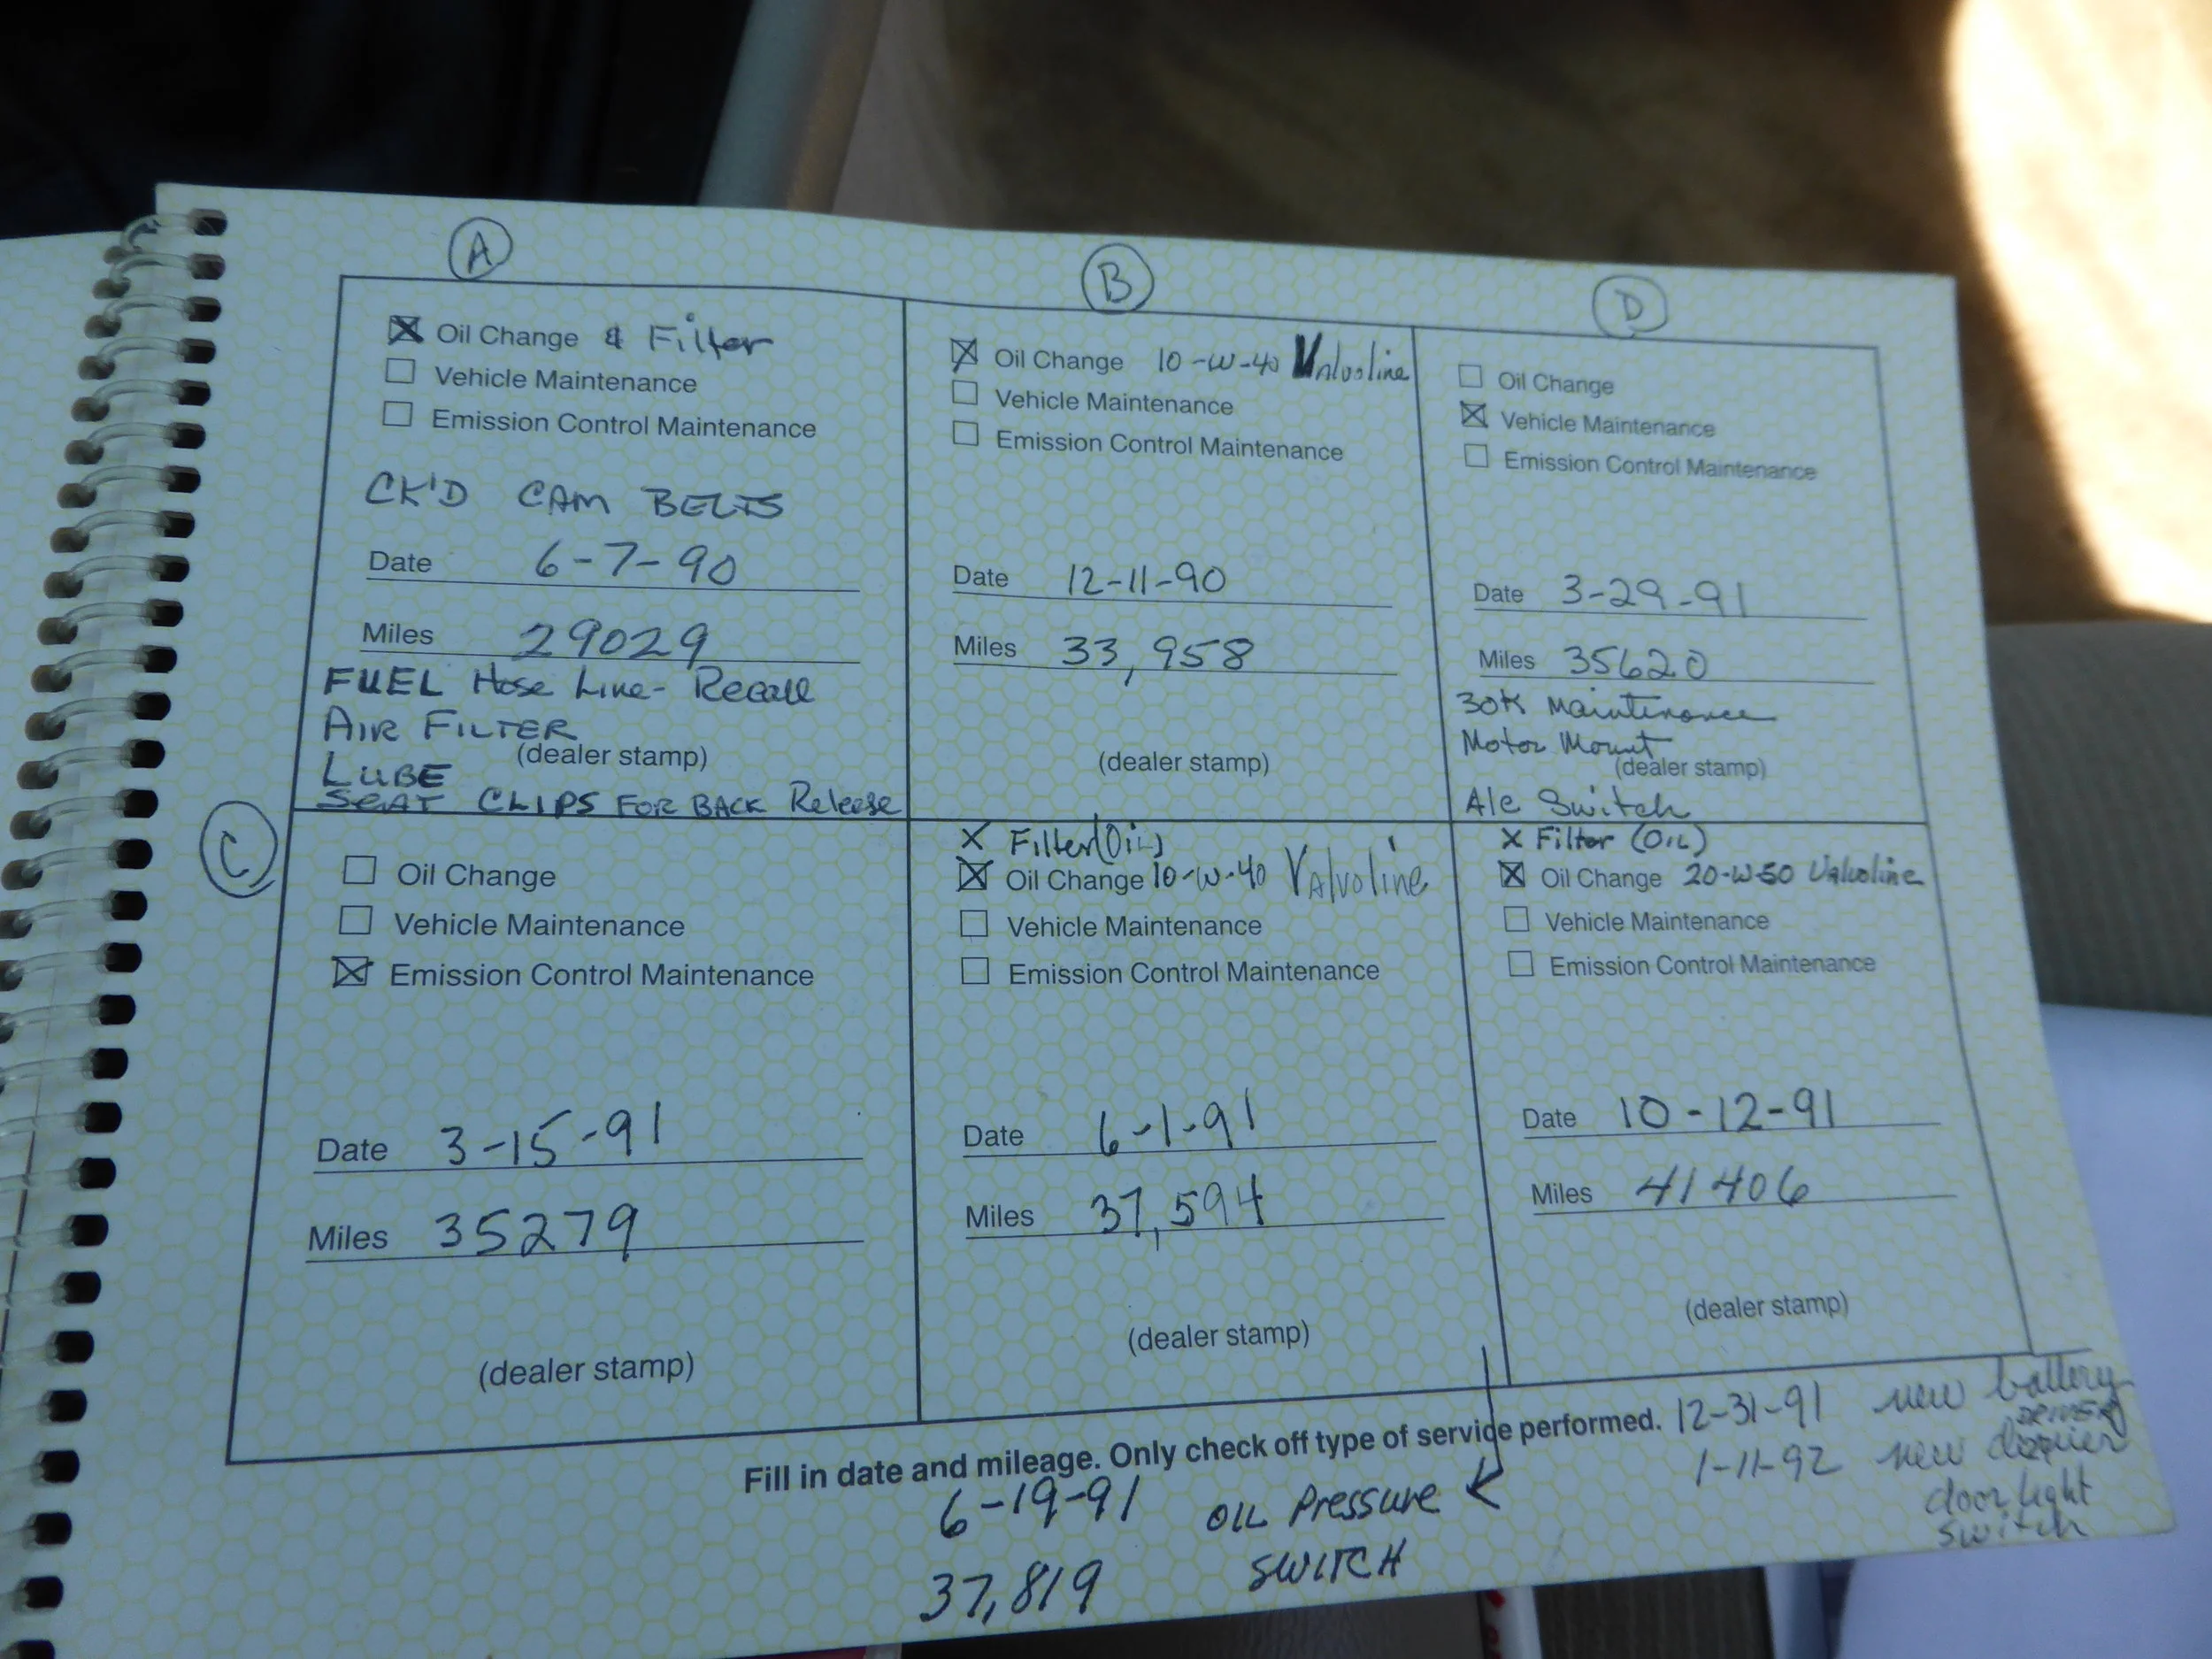 A
Oil Change & Filter
Vehicle Maintenance
Emission Control Maintenance
CK'D CAM BELTS
Date 6-7-90
Miles 29029
FUEL Hose Line - Recall
AIR FILTER
(dealer stamp)
LUBE
SEAT CLIPS FOR BACK Release
B
Oil Change 10-W-40 Valvoline
Vehicle Maintenance
Emission Control Maintenance
Date 12-11-90
Miles 33,958
(dealer stamp)
D
Oil Change
Vehicle Maintenance
Emission Control Maintenance
Date 3-29-91
Miles 35620
30K Maintenance
Motor Mount
(dealer stamp)
A/c Switch
C
Oil Change
Vehicle Maintenance
Emission Control Maintenance
Date 3-15-91
Miles 35279
(dealer stamp)
X Filter (OIL)
Oil Change 10-W-40 Valvoline
Vehicle Maintenance
Emission Control Maintenance
Date 6-1-91
Miles 37,594
(dealer stamp)
X Filter (OIL)
Oil Change 20-W-50 Valvoline
Vehicle Maintenance
Emission Control Maintenance
Date 10-12-91
Miles 41406
(dealer stamp)
Fill in date and mileage. Only check off type of service performed.
6-19-91 OIL Pressure
37,819 SWITCH
12-31-91 new battery
DRIVER
1-11-92 new
door light
switch